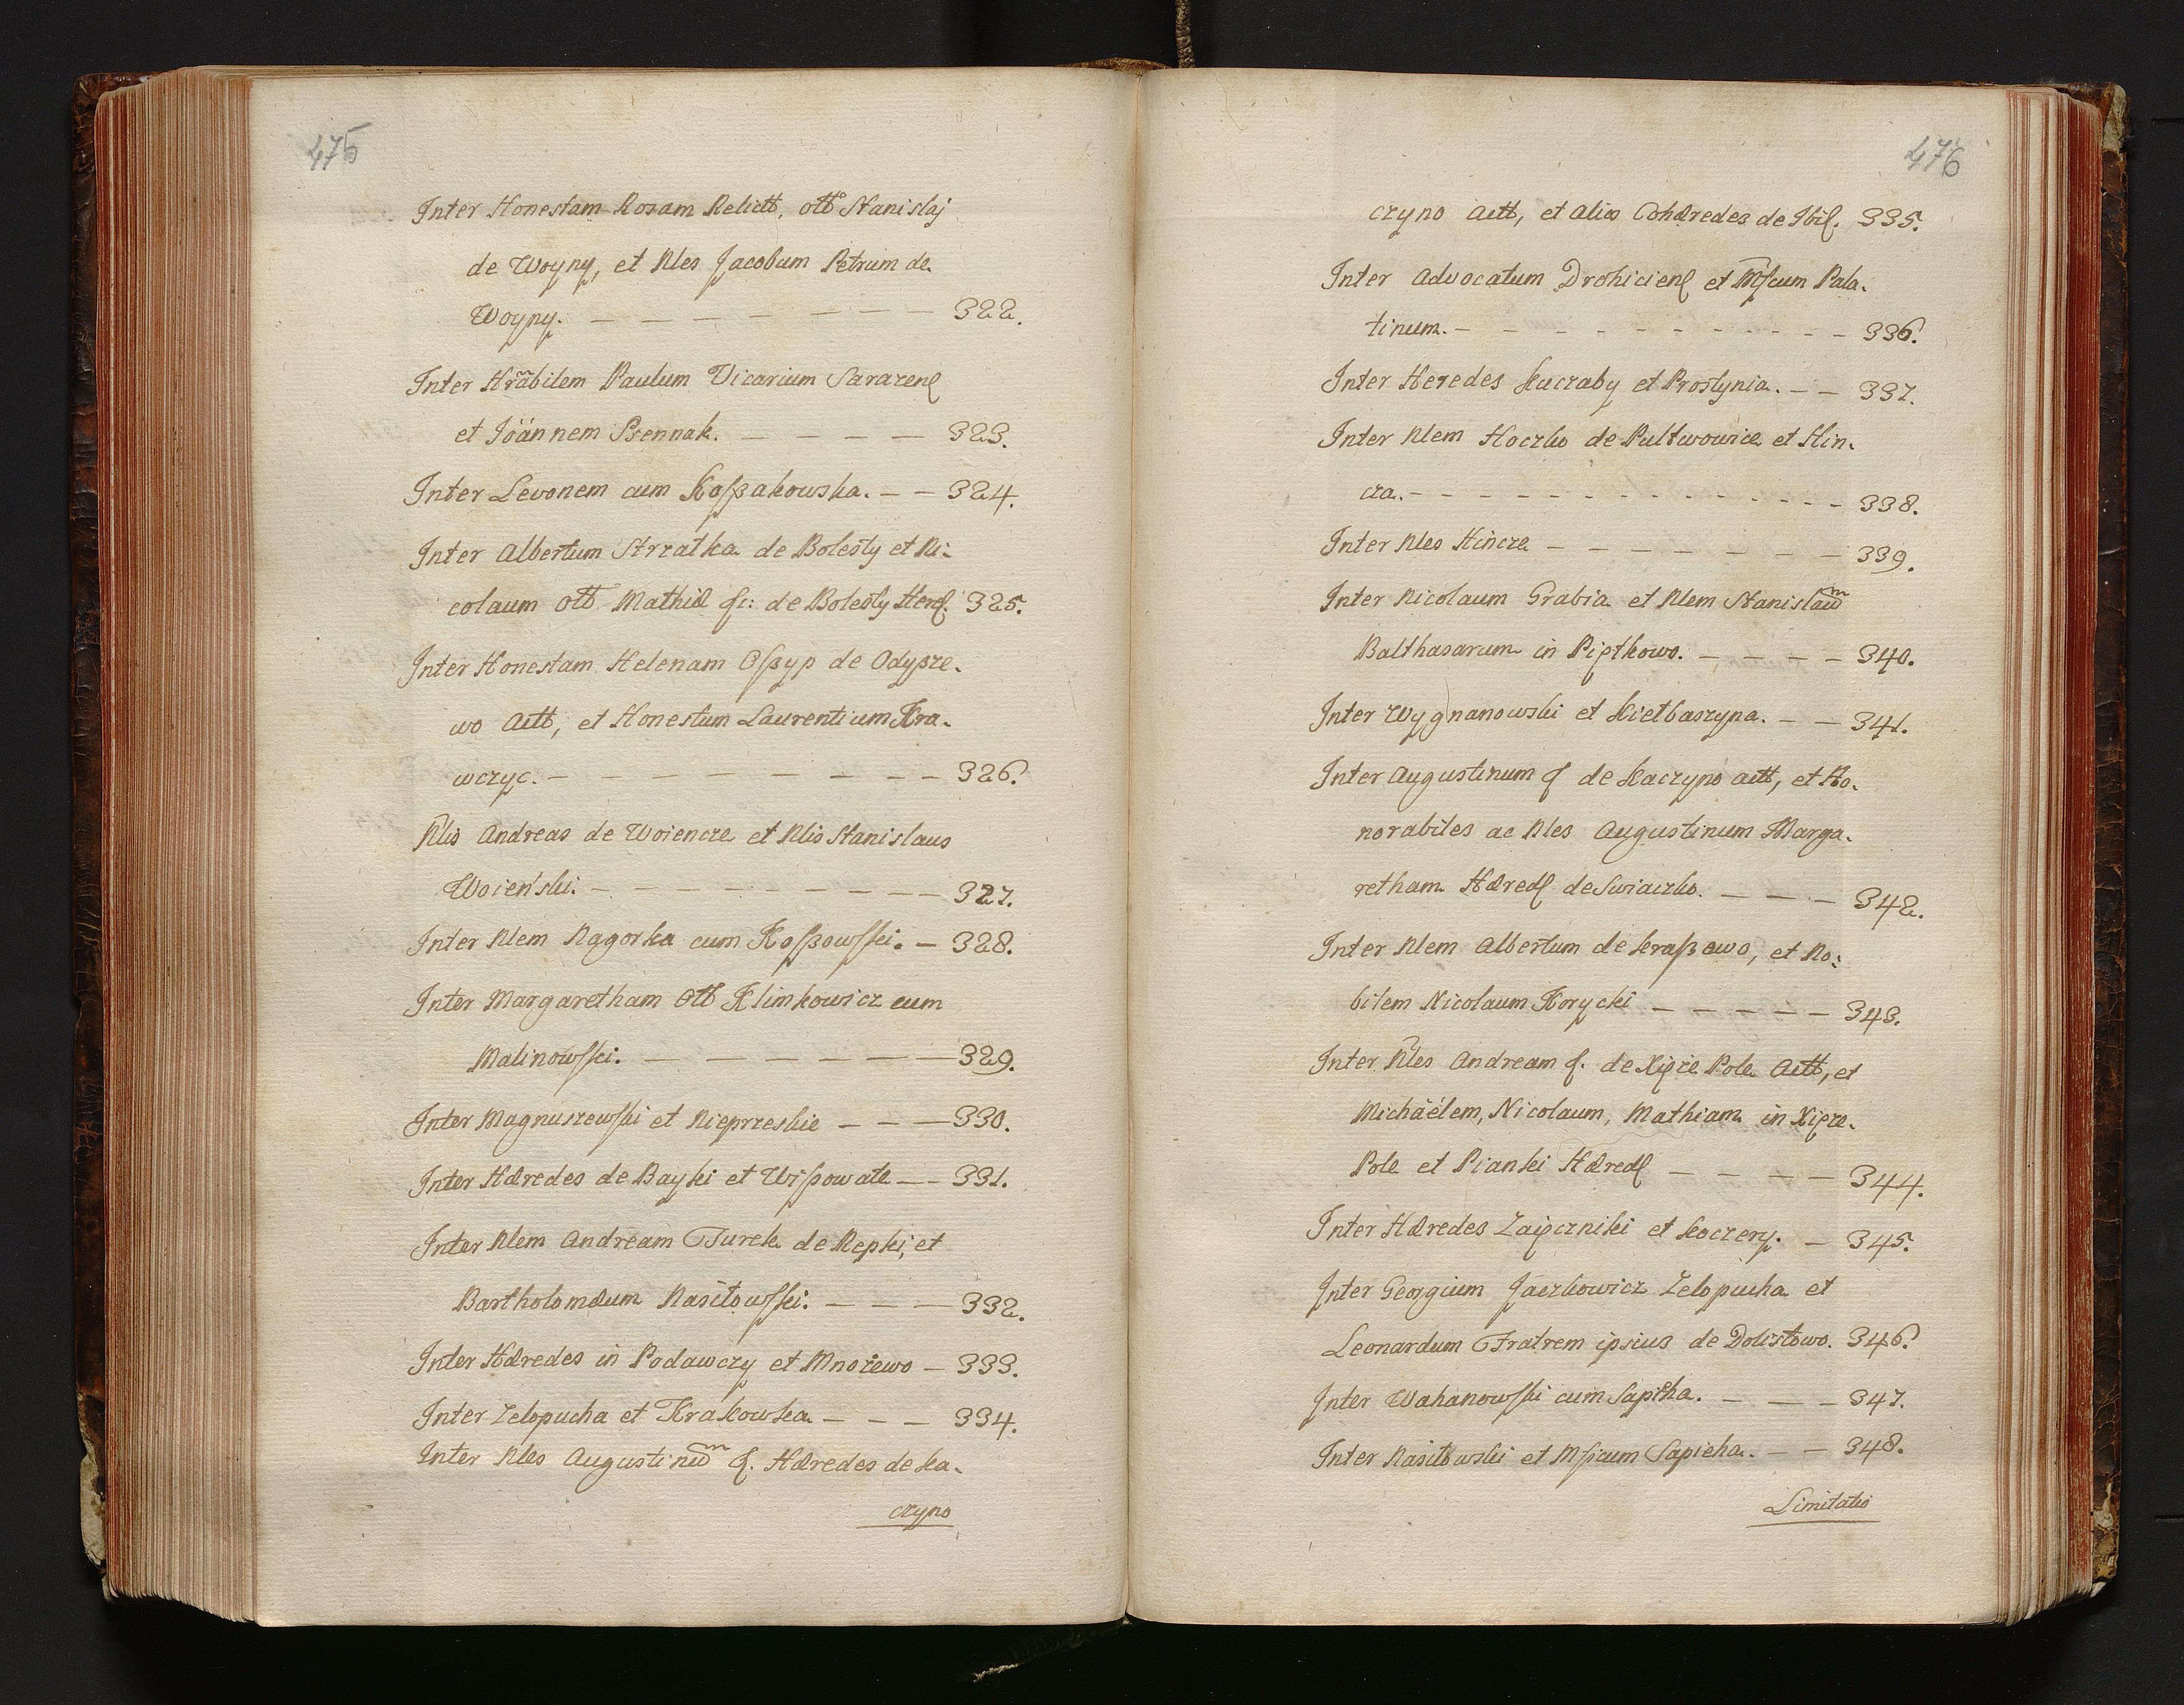 475
Inter Honestam Rosam Relictt, ott Stanislaj
de Woyny, et Nles Jacobum Petrum de
Woyny. — — — — — — — — 322.
Inter Hrãbilem Paulum Vicarium Sarazenẽ
et Jöannem Psennak. — — — — 323.
Inter Levonem cum Koßakowska. — — 324.
Inter Albertum Strzatka de Bolesty et Ni-
colaum ott Mathiæ de Bolesty Here. 325.
Inter Honestam Helenam Oßyp de Odyßze-
wo Actt, et Honestum Laurentium Kra-
wczyc. — — — — — — — — 326.
Nlis Andreas de Woiencze et Nlis Stanislaus
Woieński. — — — — — — — 327.
Inter Nlem Nagorka cum Koßowski. — 328.
Inter Margaretham ott Klimkowicz cum
Malinowski. — — — — — — 329.
Inter Magnuszewski et Nieprzeskie — — — 330.
Inter Hæredes de Bayki et Wißowate — — 331.
Inter Nlem Andream Turek de Repki, et
Bartholomæum Nasitowski. — — — 332.
Inter Hæredes in Podawczy et Mnożewo — 333.
Inter Zelopucha et Krakowka — — — 334.
Inter Nles Augustinũm Hæredes de Ka-
czyno
476
czyno Actt, et alios Cohæredes de Ibi. 335.
Inter Advocatum Drohicien et Mfcum Pala-
tinum. — — — — — — — — 336.
Inter Heredes Kaczaby et Prostynia. — — 337.
Inter Nlem Hoczko de Pultwowice et Hin-
cza. — — — — — — — — 338.
Inter Nles Hincze — — — — — — 339.
Inter Nicolaum Grabia et Nlem Stanislaũm
Balthasarum in Piętkowo. — — — — 340.
Inter Wygnanowski et Kietbaszyna. — — 341.
Inter Augustinum de Kaczyno actt, et Ho-
norabiles ac Nles Augustinum Marga-
retham Hæred de Swiaczko. — — — 342.
Inter Nlem Albertum de Kraßewo, et No-
bilem Nicolaum Korycki — — — — — 343.
Inter Nles Andream de Xięże Pole Actt, et
Michäelem, Nicolaum, Mathiam in Xięże-
Pole et Pianki Hæred — — — — 344.
Inter Hæredes Zaięczniki et Koczery. — 345.
Inter Georgium Jaczkowicz Zelopucha et
Leonardum Fratrem ipsius de Dolistowo. 346.
Inter Wahanowski cum Sapiha. — — — 347.
Inter Nasitowski et Mficum Sapieha. — — 348.
Limitatio